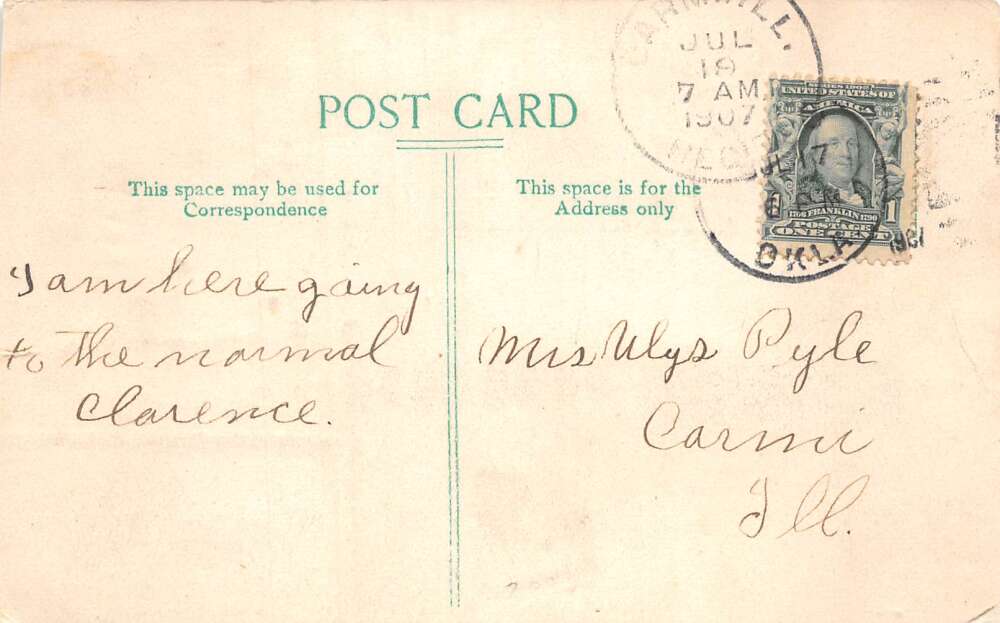 POST CARD
This space may be used for
Correspondence
This space is for the
Address only
CARMI, ILL.
JUL
19
7 AM
1907
REC'D
JUL 17
OKLA
1907
SERIES 1902
UNITED STATES OF
AMERICA
1706 FRANKLIN 1790
POSTAGE
ONE CENT
1
I am here going
to the normal
Clarence.
Mrs Ulys Pyle
Carmi
Ill.